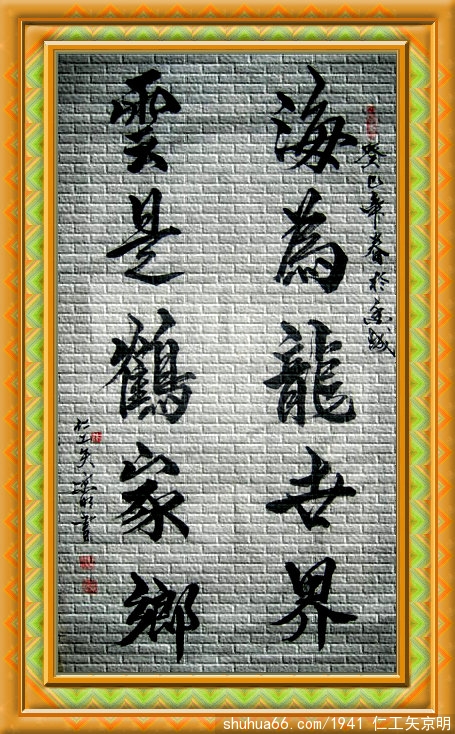 癸巳年春於京城
海為龍世界
雲是鶴家鄉
仁工矢京明書
shuhua66.com/1941 仁工矢京明